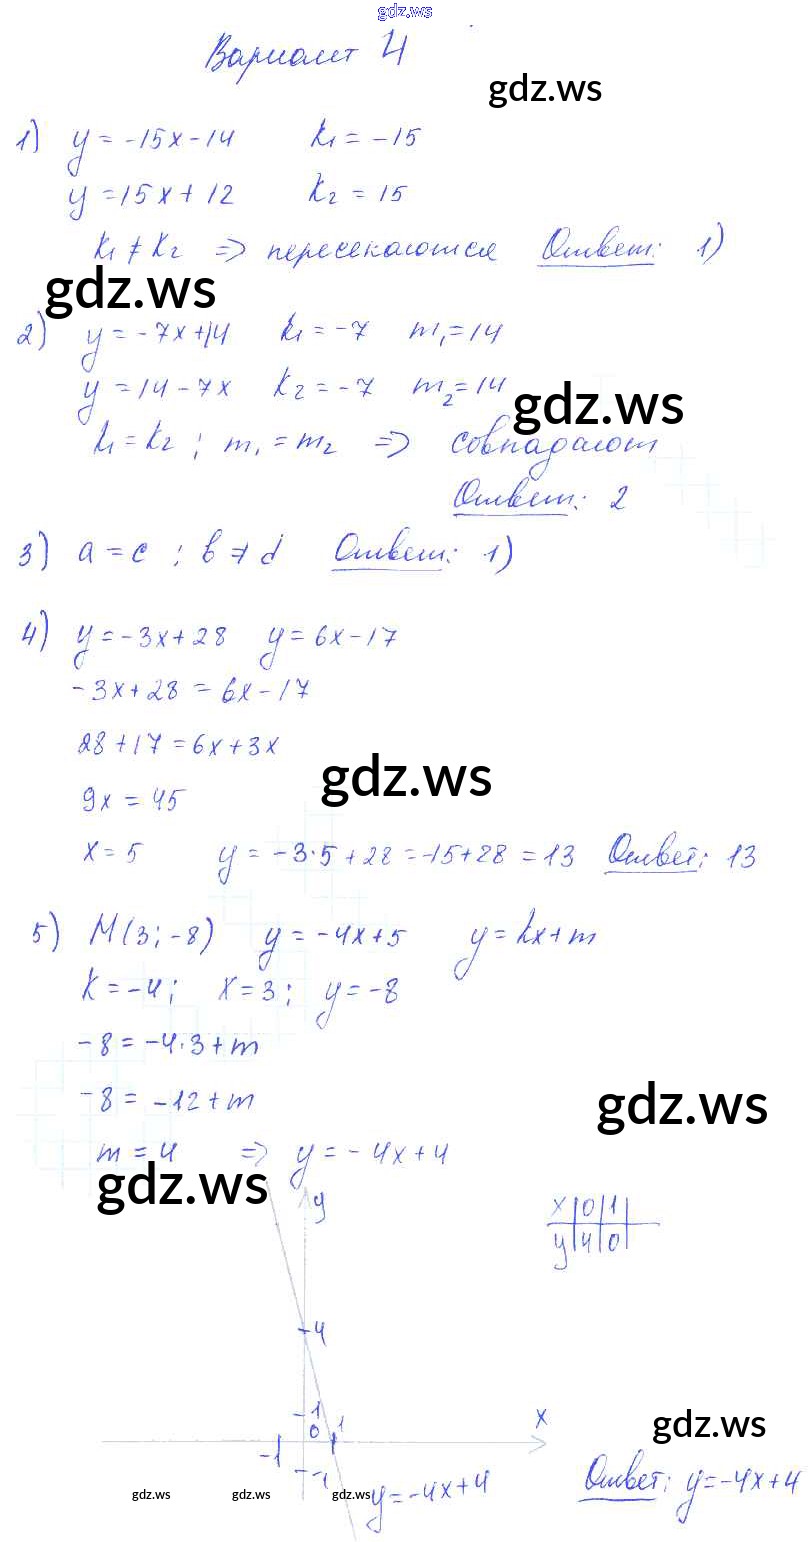 gdz.ws
Вариант 4
gdz.ws
1) y = -15x - 14 k₁ = -15
y = 15x + 12 k₂ = 15
k₁ ≠ k₂ => пересекаются Ответ: 1)
gdz.ws
2) y = -7x + 14 k₁ = -7 m₁ = 14
y = 14 - 7x k₂ = -7 m₂ = 14
gdz.ws
k₁ = k₂ ; m₁ = m₂ => совпадают
Ответ: 2
3) a = c ; b ≠ d Ответ: 1)
4) y = -3x + 28 y = 6x - 17
-3x + 28 = 6x - 17
28 + 17 = 6x + 3x
gdz.ws
9x = 45
x = 5 y = -3·5 + 28 = -15 + 28 = 13 Ответ: 13
5) M(3; -8) y = -4x + 5 y = kx + m
k = -4; x = 3; y = -8
-8 = -4·3 + m
-8 = -12 + m
gdz.ws
m = 4 => y = -4x + 4
gdz.ws
y
x 0 1
y 4 0
4
1
0 1 x
gdz.ws
-1
-1
Ответ: y = -4x + 4
y = -4x + 4
gdz.ws gdz.ws gdz.ws